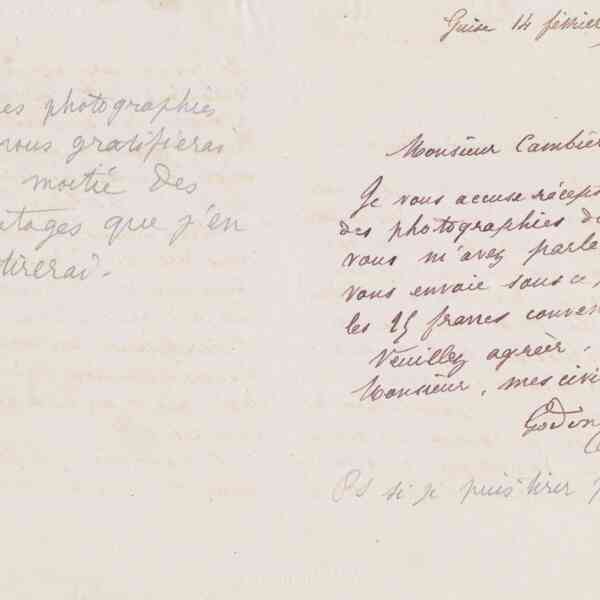 Guise 14 février
Monsieur Cambier
Je vous accuse récep
des photographies do
vous m'avez parlé
vous envoie sous ce
les 25 francs conven
Veuillez agréer,
Monsieur, mes civi
Godin
PS si je puis tirer p
es photographies
vous gratifierai
moitié des
ntages que j'en
tirerai.